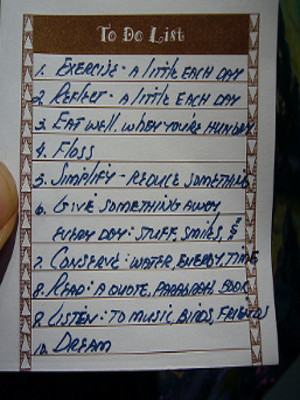 To Do List
1. EXERCISE - A little EACH DAY
2. REFLECT - A LITTLE EACH DAY
3. EAT WELL. WHEN YOU'RE HUNGRY
4. FLOSS
5. SIMPLIFY - REDUCE SOMETHING
6. GIVE SOMETHING AWAY
EVERY DAY: STUFF, SMILES, $
7. CONSERVE: WATER, ENERGY, TIME
8. READ: A QUOTE, PARAGRAPH, BOOK
9. LISTEN: TO MUSIC, BIRDS, FRIENDS
10. DREAM